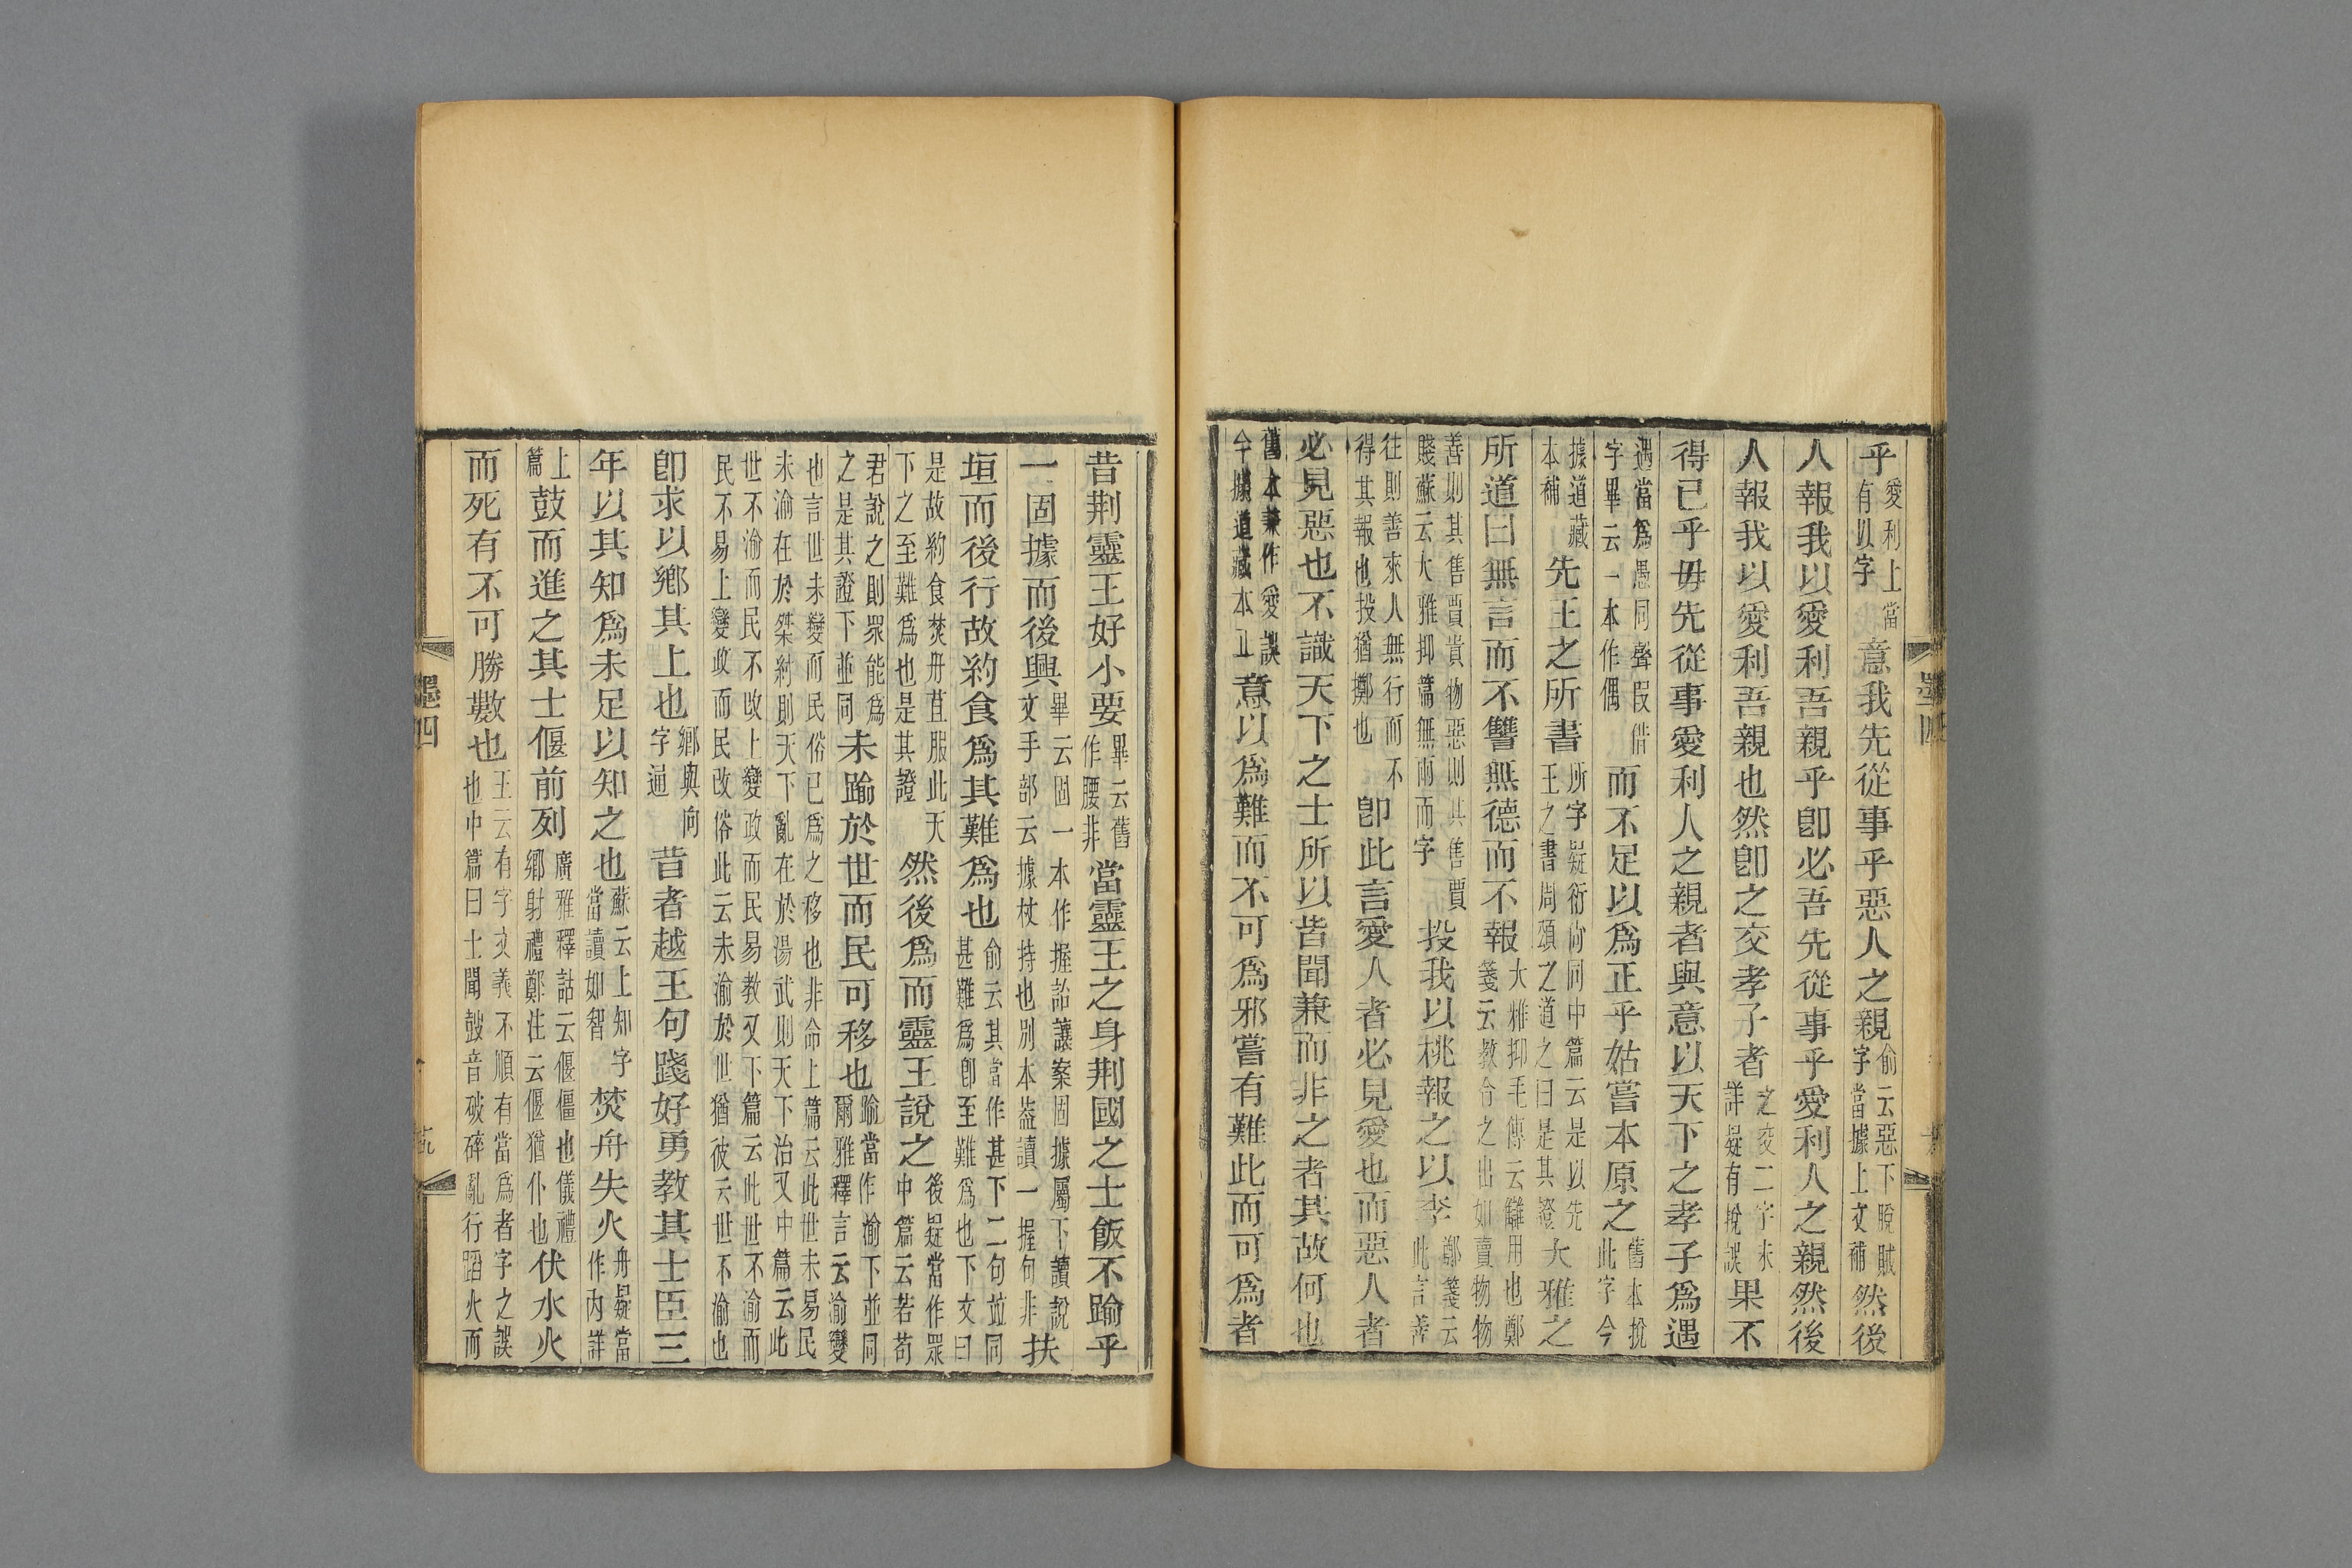 乎愛利上當有以字意我先從事乎惡人之親俞云惡下脫賊字當據上文補然後
人報我以愛利吾親乎卽必吾先從事乎愛利人之親然後
人報我以愛利吾親也然卽之交孝子者之交二字未詳疑有挩誤果不
得已乎毋先從事愛利人之親者與意以天下之孝子爲遇
遇當爲愚同聲叚借字畢云一本作偶而不足以爲正乎姑嘗本原之舊本挩此字今
據道藏本補先王之所書所字疑衍尚同中篇云是以先王之書周頌之道之曰是其證大雅之
所道曰無言而不讐無德而不報大雅抑毛傳云讎用也鄭箋云教令之出如賣物物
善則其售賈貴物惡則其售賈賤蘇云大雅抑篇無兩而字投我以桃報之以李鄭箋云此言善
往則善來人無行而不得其報也投猶擲也卽此言愛人者必見愛也而惡人者
必見惡也不識天下之士所以皆聞兼而非之者其故何也
舊本兼作愛誤今據道藏本正意以爲難而不可爲邪嘗有難此而可爲者
昔荆靈王好小要畢云舊作腰非當靈王之身荆國之士飯不踰乎
一固據而後興畢云固一本作握詒讓案固據屬下讀說文手部云據杖持也別本葢讀一握句非扶
垣而後行故約食爲其難爲也俞云其當作甚下二句竝同甚難爲卽至難爲也下文曰
是故約食焚舟苴服此天下之至難爲也是其證然後爲而靈王說之後疑當作眾中篇云若苟
君說之則眾能爲之是其證下並同未踰於世而民可移也踰當作渝下並同爾雅釋言云渝變
也言世未變而民俗已爲之移也非命上篇云此世未易民未渝在於桀紂則天下亂在於湯武則天下治又中篇云此
世不渝而民不改上變政而民易教又下篇云此世不渝而民不易上變政而民改俗此云未渝於世猶彼云世不渝也
卽求以鄉其上也鄉與向字通昔者越王句踐好勇教其士臣三
年以其知爲未足以知之也蘇云上知字當讀如智焚舟失火舟疑當作內詳
上篇鼓而進之其士偃前列廣雅釋詁云偃僵也儀禮鄉射禮鄭注云偃猶仆也伏水火
而死有不可勝數也王云有字文義不順有當爲者字之誤也中篇曰士聞鼓音破碎亂行蹈火而
墨四
墨四